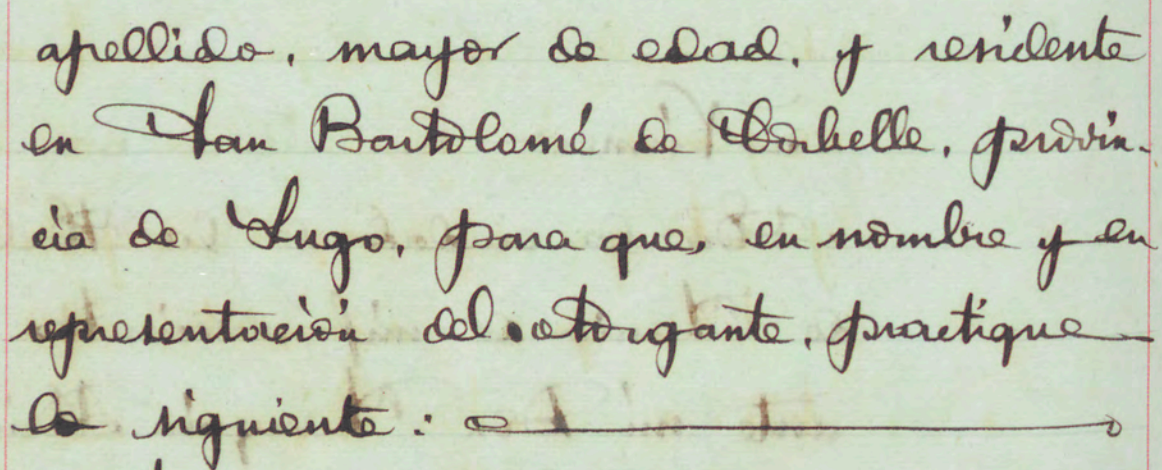 apellido, mayor de edad, y residente
en San Bartolomé de Corbelle, provin-
cia de Lugo, para que, en nombre y en
representación del otorgante, practique
lo siguiente: